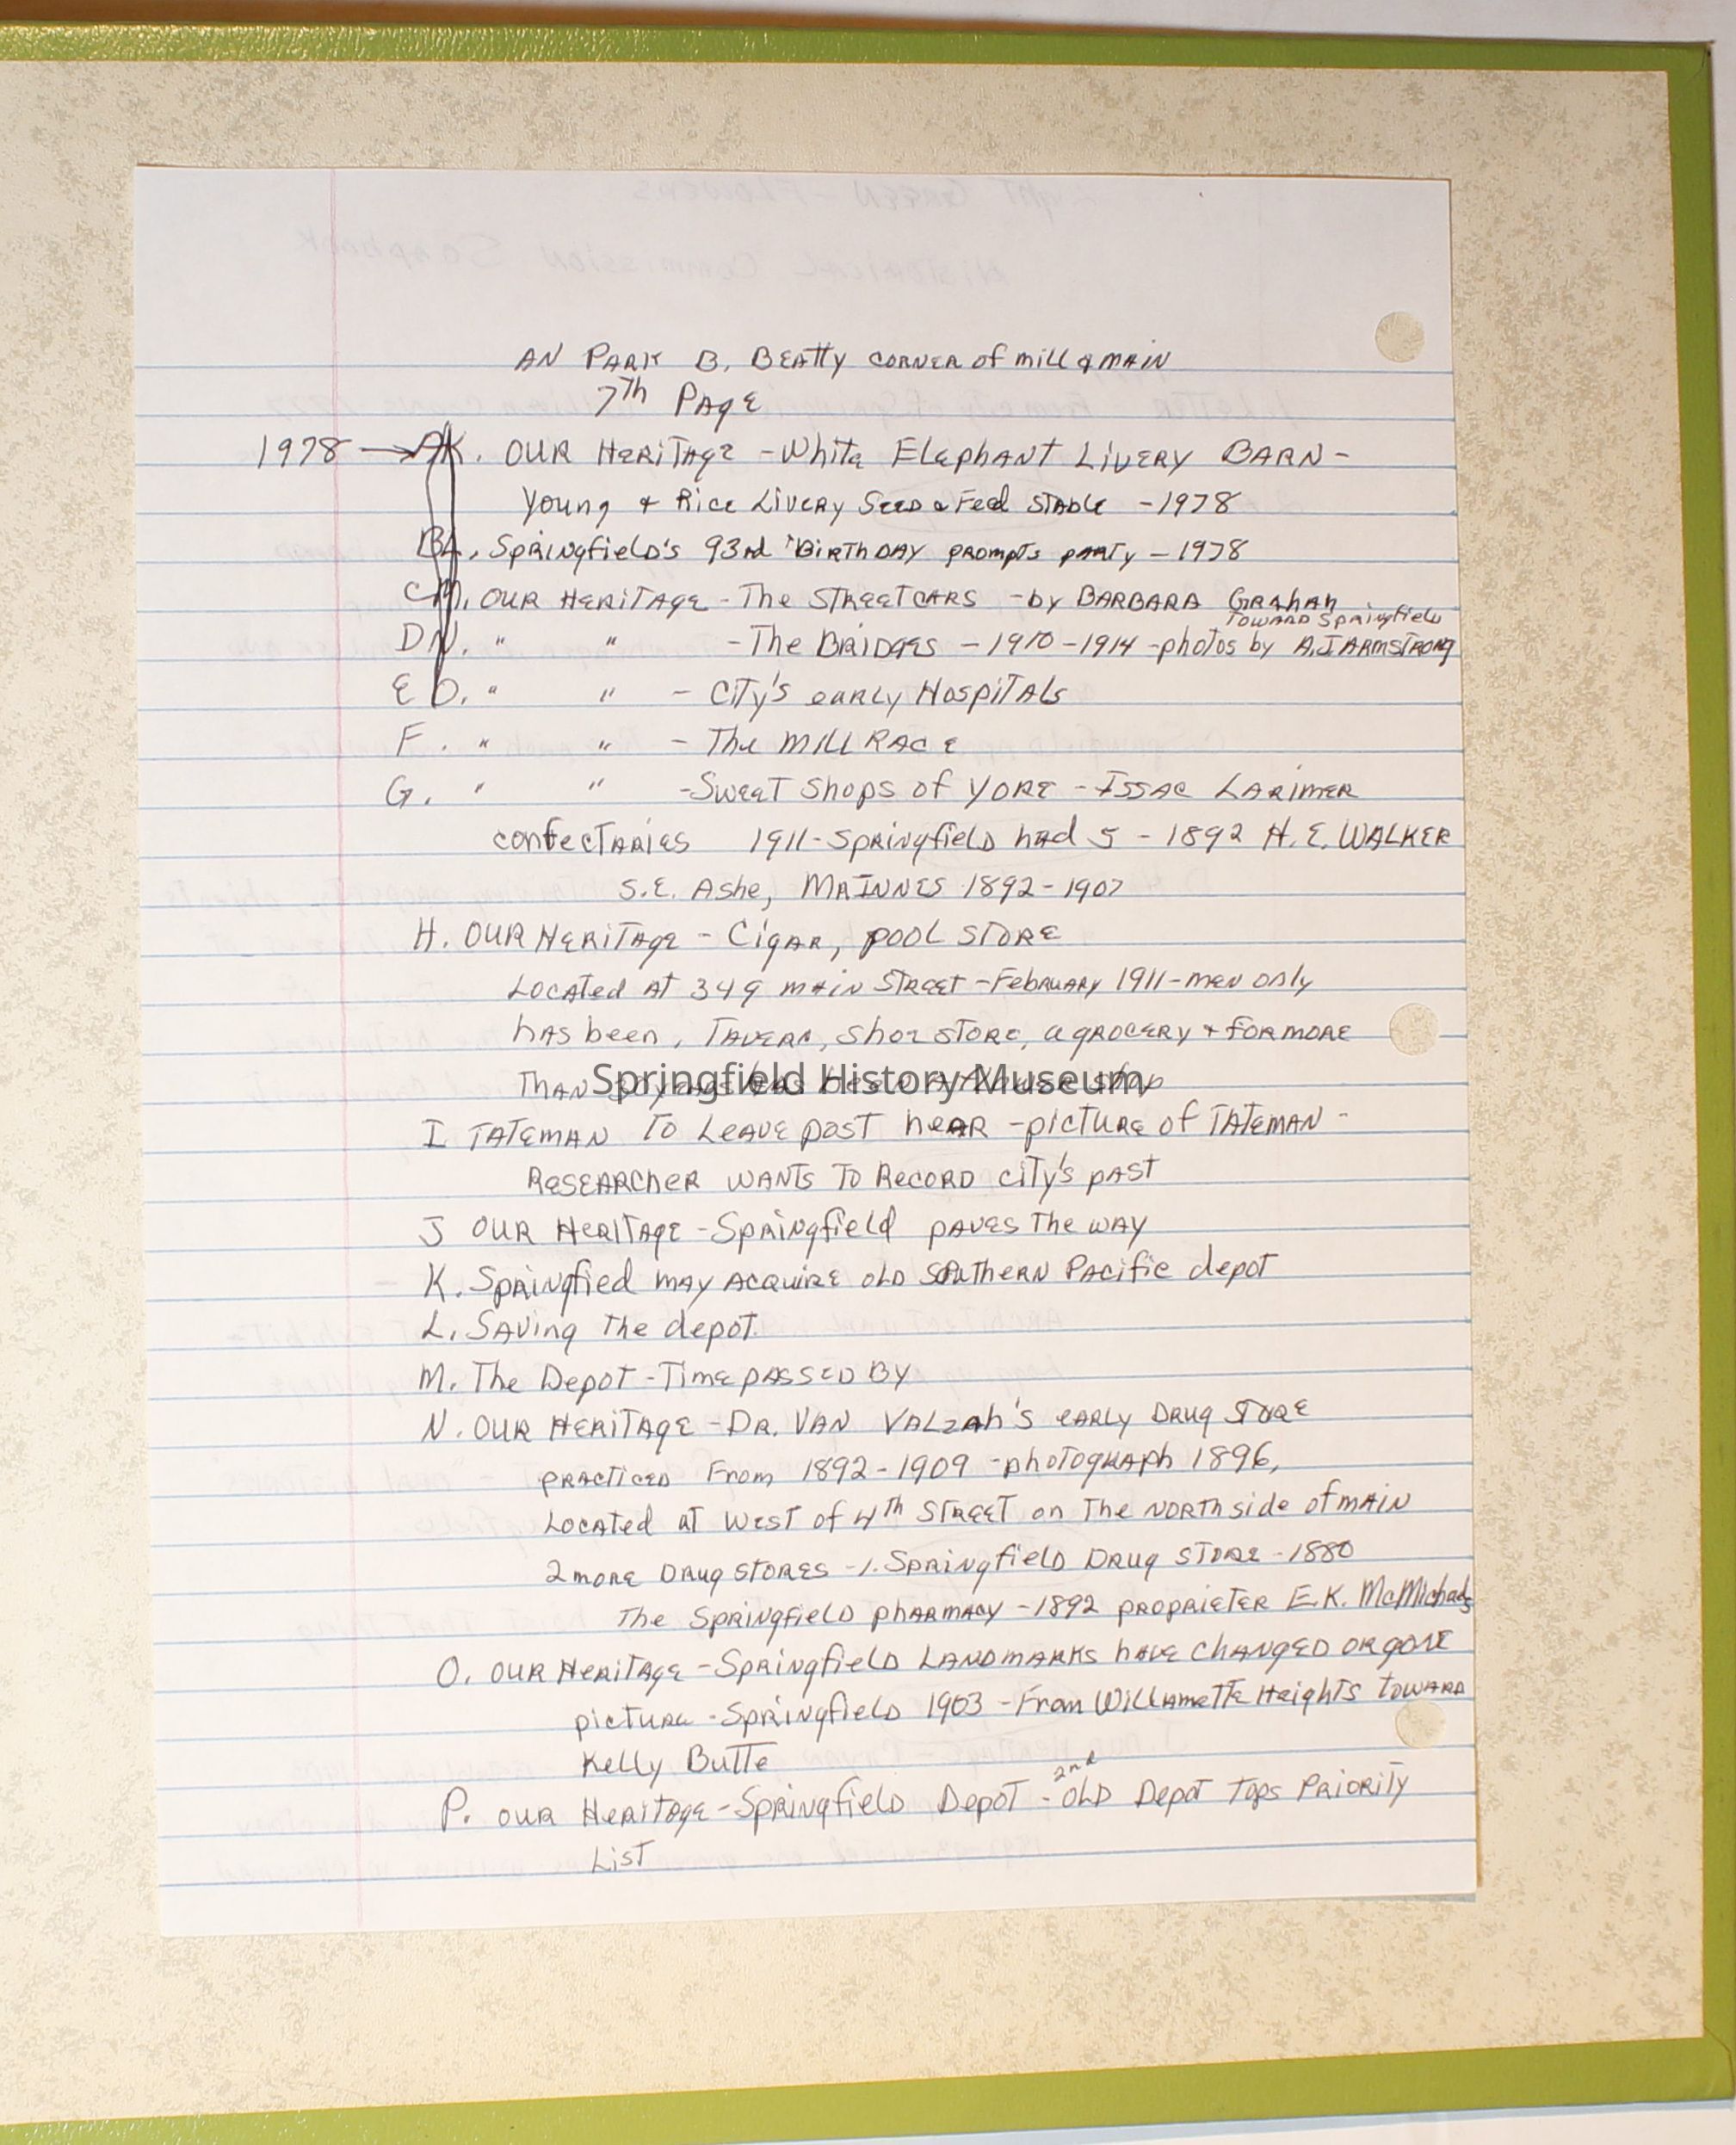 AN PARK B. BEATTY CORNER of mill & MAIN
7Th PAgE
1978 → AK. OUR HERiTAgE - White ELEPHANT LivERY BARN -
Young & Rice LivERY SEED & Feed STABLE - 1978
BL. SpRiNgfieLD'S 93Rd "BiRTHDAY PROMpTs pARTy - 1978
CM. OUR HERiTAgE - The STREETCARS - by BARBARA GRAHAM
TOWARD SpRiNgfieLD
DN. " " - The BRiDgES - 1910 - 1914 - photos by A.J ARMSTRONg
E O. " " - CiTy's eARLy HospiTALs
F. " " - The MiLL RACE
G. " " - SWEET Shops of YORE - ISSAC LARiMER
confecTARiES 1911 - SpRiNgfieLD had 5 - 1892 H.E. WALKER
S.E. Ashe, MAINNES 1892 - 1907
H. OUR HERiTAgE - CigAR, pOOL STORE
LOCATed AT 349 MAiN STREET - FebRUARY 1911 - MEN ONLy
hAS been, TAVERN, Shoe STORE, a gROCERY & foR MORE
ThAN
I TATEMAN TO LEAVE past heAR - picTURE of TATEMAN -
RESEARCHER WANTS TO RECORD CiTy's pAST
J OUR HERiTAgE - SpRiNgfieLd PAVES The WAY
K. SpRiNgfied MAY ACQUiRE OLD SOUThERN PACific depoT
L. SAViNg The depoT.
M. The DepoT - Time PASSED BY
N. OUR HERiTAgE - DR. VAN VALzAh's eARLy DRUg STORE
PRACTiCED FROM 1892 - 1909 - phoTOgRAph 1896,
LOCATed at WEST of 4Th STREET on The NORTH side of MAiN
2 MORE DRUg STORES - 1. SpRiNgfieLD DRUg STORE - 1880
The SpRiNgfieLD phARMACY - 1892 pROpRiETER E.K. McMichaels
O. OUR HERiTAgE - SpRiNgfieLD LANDMARKS hAVE ChANgED OR gONE
picTURE - SpRiNgfieLD 1903 - FROM WiLLAMETTE HeighTS TOWARD
KeLLy BuTTe
P. OUR HERiTAgE - SpRiNgfieLD DEpoT - 2nd OLD DEpoT Tops PRiORiTy
LiST
Springfield History Museum